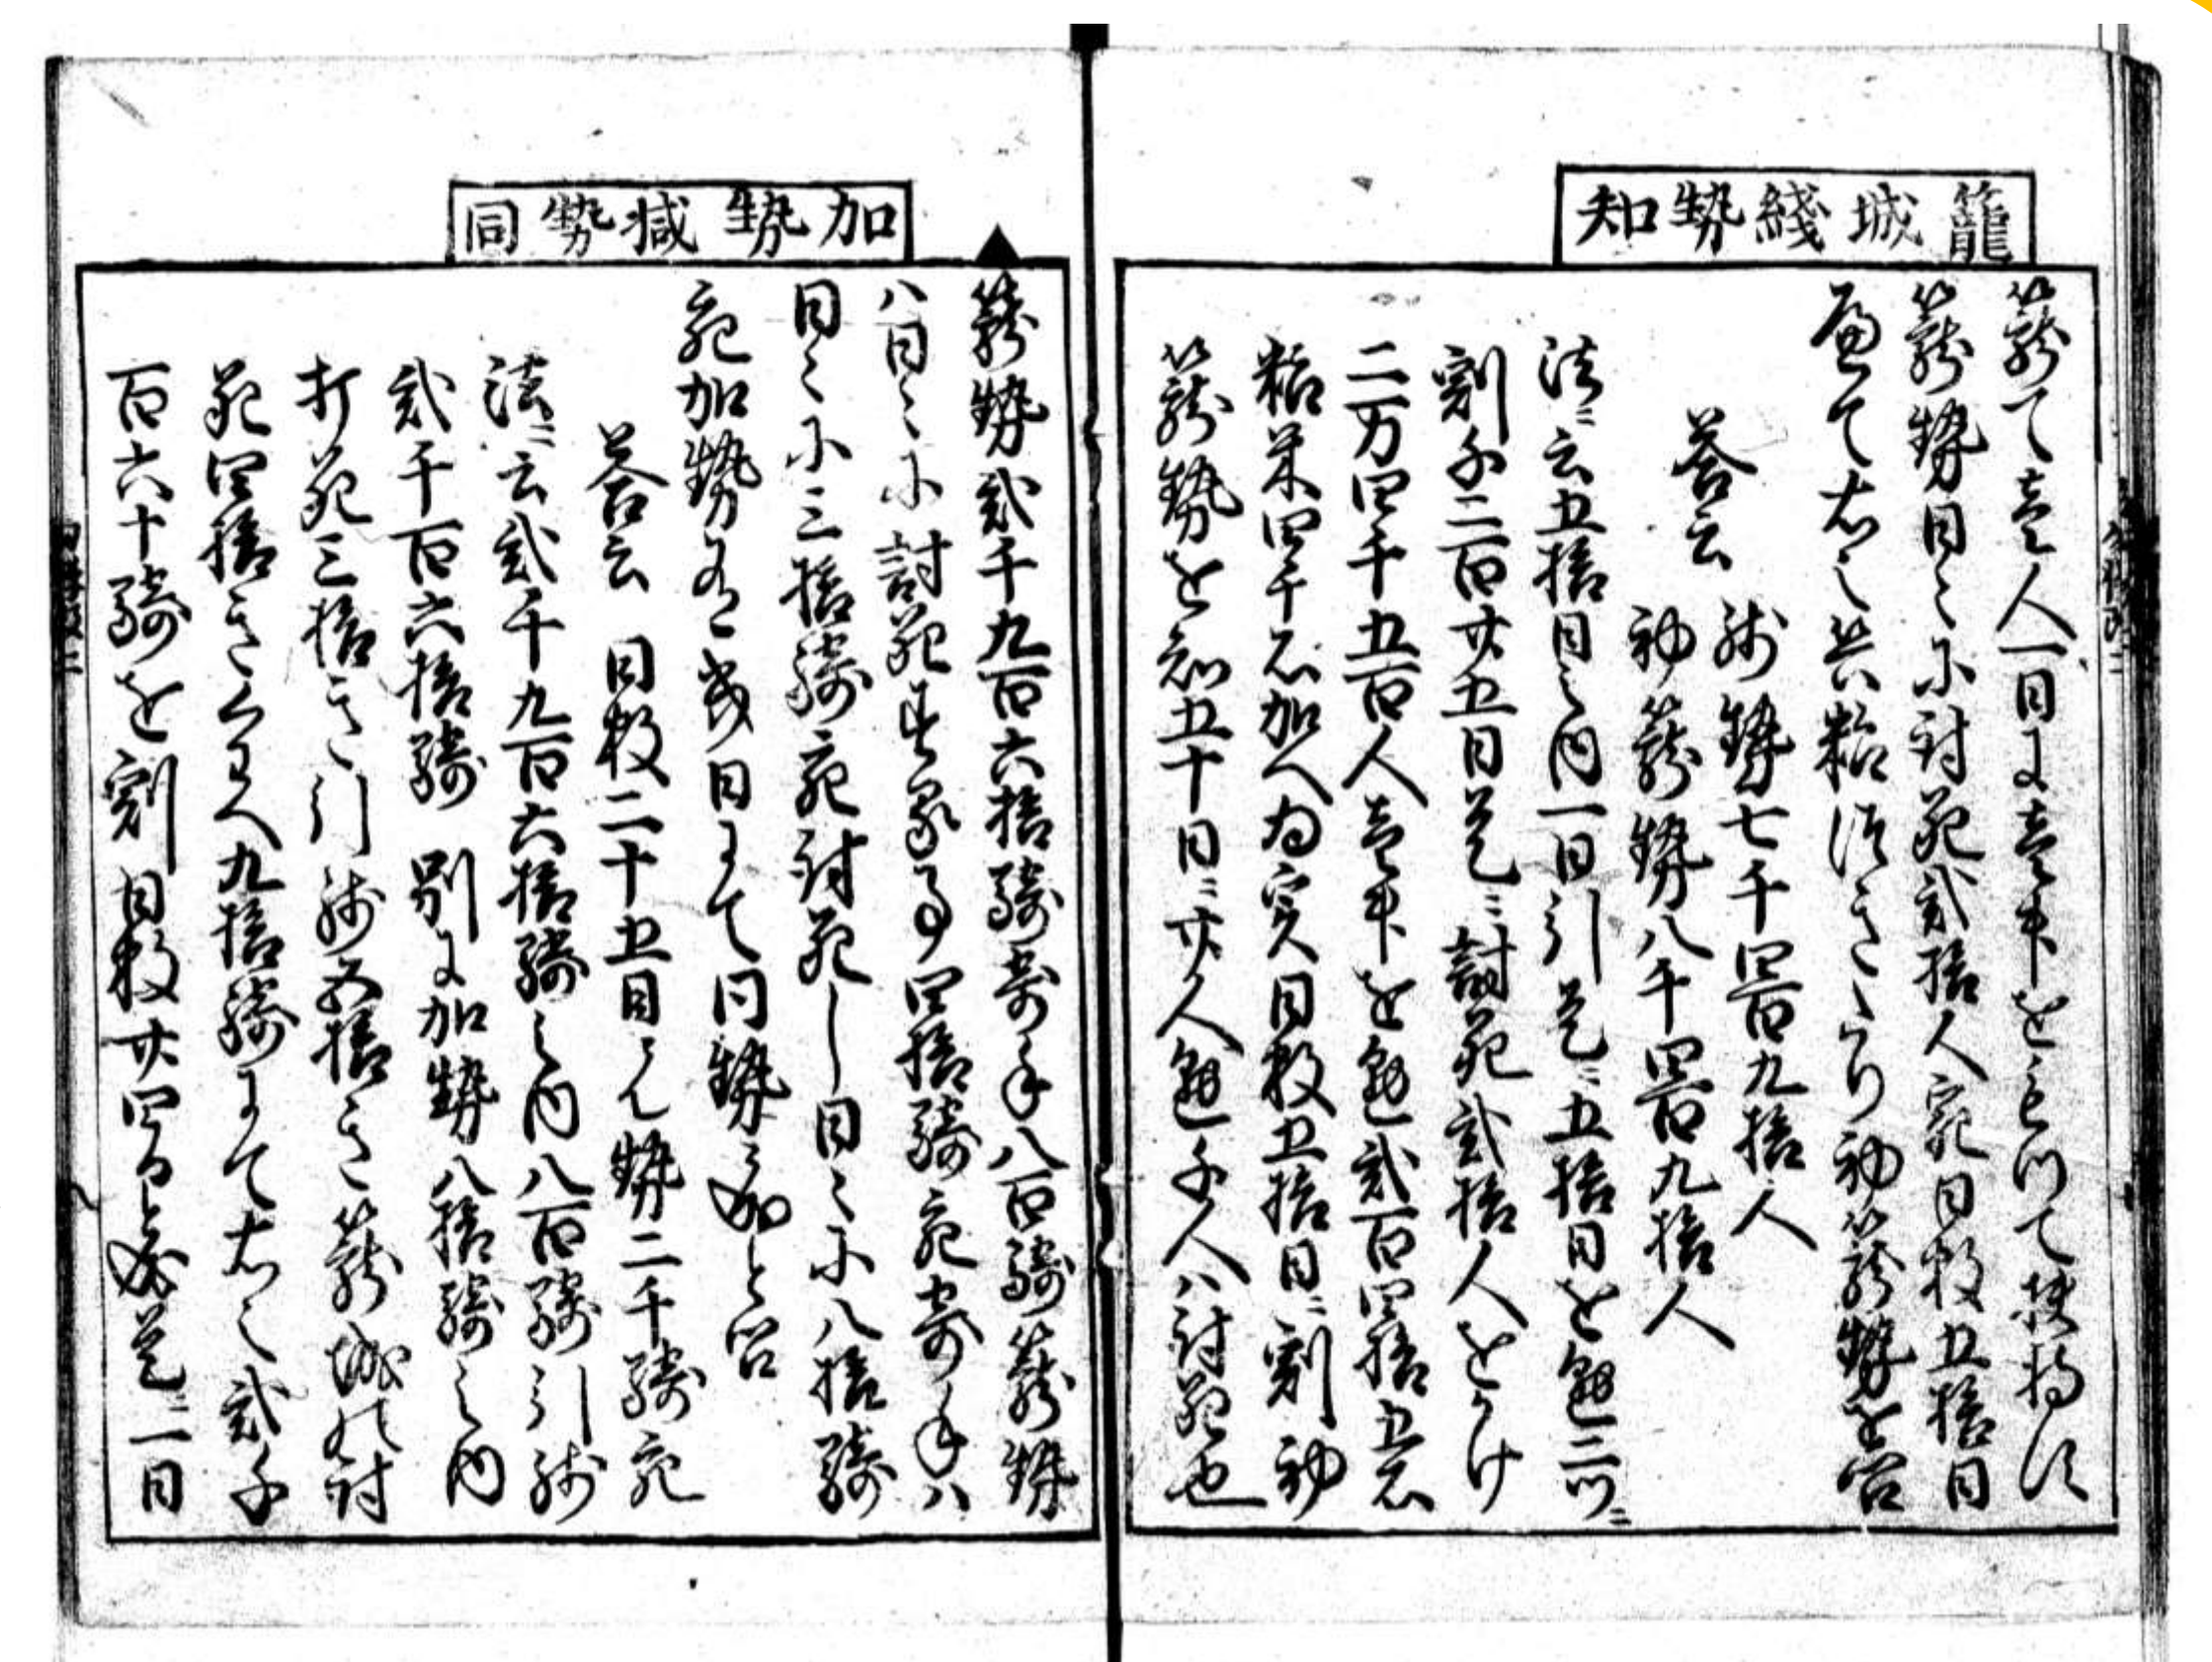 籠城綫勢知
籠て壱人一日に壱升をもつて扶持す
籠勢日々に討死弐拾人宛日数五拾日
而て右之兵粮
初籠勢を問
答云
残勢七千四百九拾人
初籠勢八千四百九拾人
法ニ云五拾日之内一日引是ニ五拾日を懸二ツニ
割千二百廿五日是ニ討死弐拾人をかけ
二万四千五百人壱升を懸弐百四拾五石
粮米四千石加へ為実日数五拾日ニ割初
籠勢を知五十日ニ廿人懸千人ハ討死也
加勢減勢同
籠勢弐千九百六拾騎寄手八百騎籠勢
八日々に討死
四拾騎宛寄手ハ
日々に三拾騎宛討死し日々に八拾騎
宛加勢有幾日にて同勢に成と問
答云 日数二十五日 勢二千騎宛
法ニ云弐千九百六拾騎之内八百騎引残
弐千百六拾騎 別に加勢八拾騎之内
打死三拾き引残五拾き籠城の討
死四拾きくわへ九拾騎にて右之弐千
百六十騎を割日数廿四日と成是ニ一日